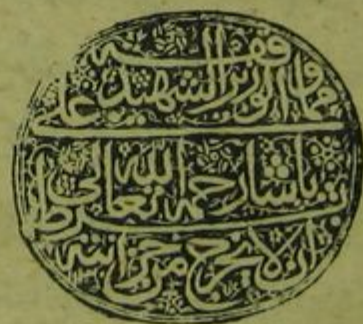 مما وقفه
الوزير الشهيد علي
باشا رحمه الله تعالى بشرط
ان لا يخرج من خزانته